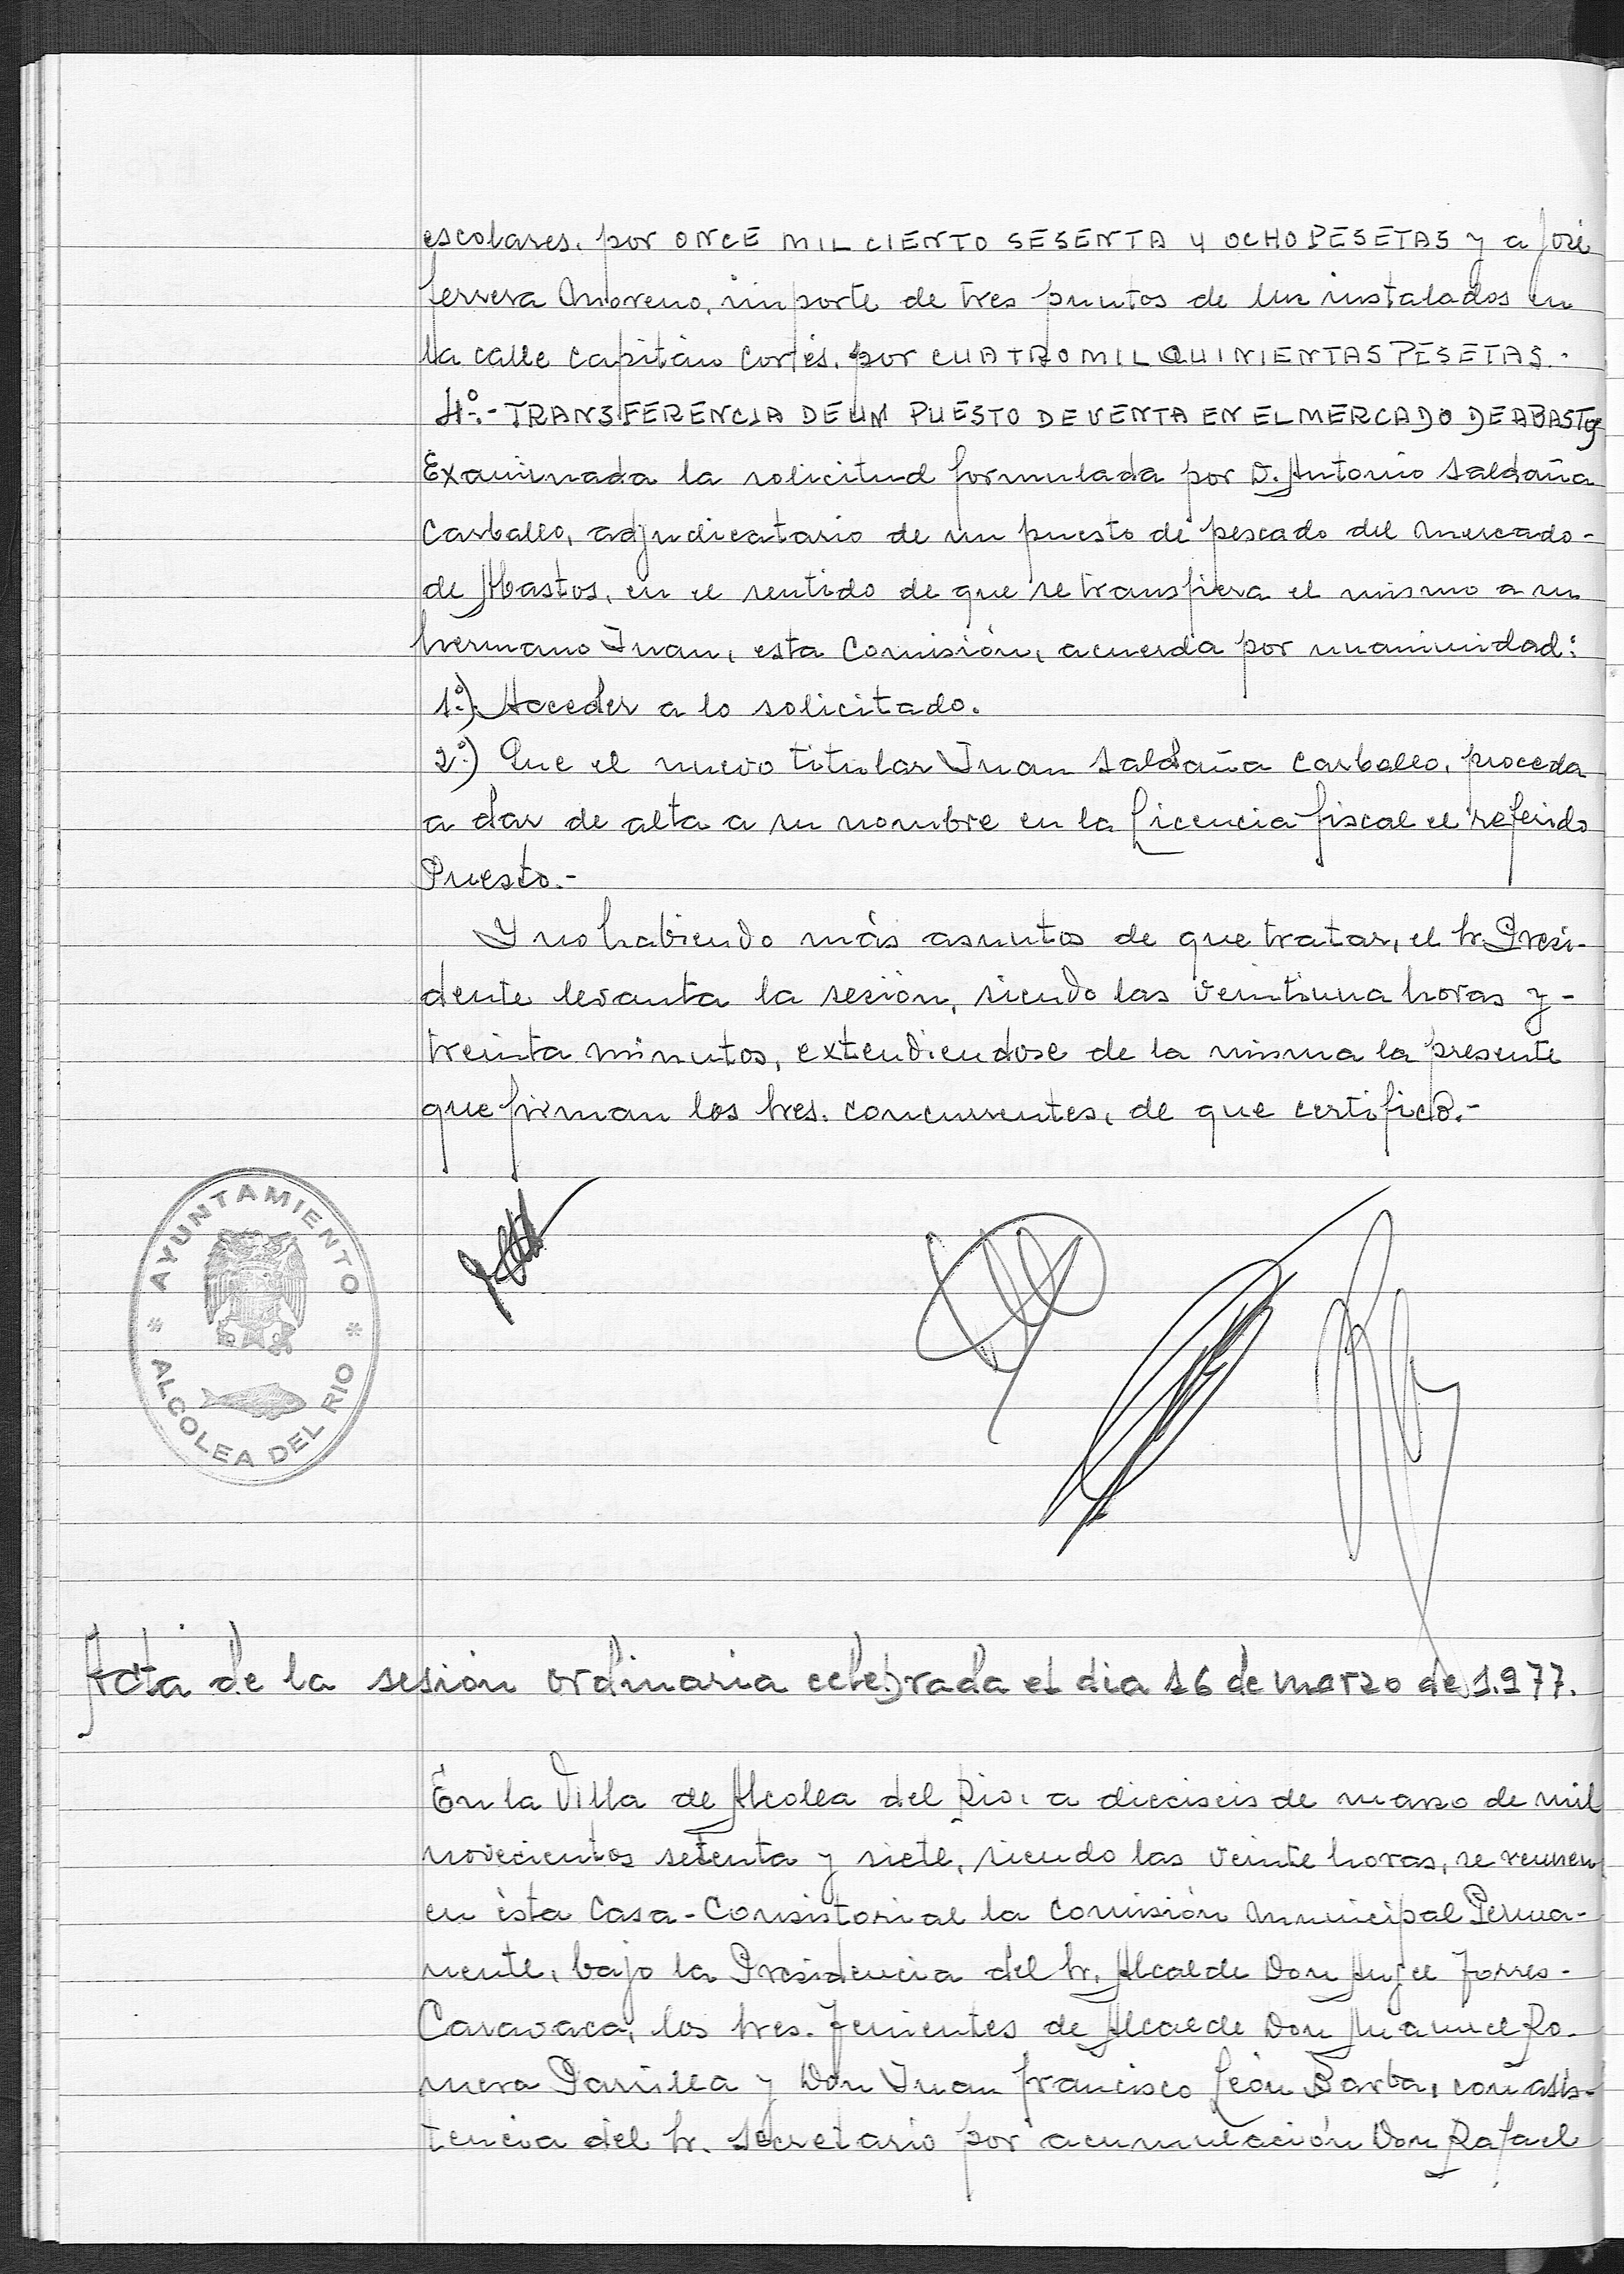 escolares, por ONCE MIL CIENTO SESENTA Y OCHO PESETAS y a José
ferrera Moreno, importe de tres puntos de luz instalados en
la calle Capitán Cortés, por CUATRO MIL QUINIENTAS PESETAS.-
4º.- TRANSFERENCIA DE UN PUESTO DE VENTA EN EL MERCADO DE ABASTOS
Examinada la solicitud formulada por D. Antonio Saldaña
Carballo, adjudicatario de un puesto de pescado del Mercado-
de Abastos, en el sentido de que se transfiera el mismo a su
hermano Juan, esta Comisión, acuerda por unanimidad:
1º) Acceder a lo solicitado.
2º) Que el nuevo titular Juan Saldaña Carballo, proceda
a dar de alta a su nombre en la Licencia fiscal el referido
Puesto.-
Y no habiendo más asuntos de que tratar, el Sr. Presi-
dente levanta la sesión, siendo las veintiuna horas y-
treinta minutos, extendiendose de la misma la presente
que firman los Sres. concurrentes, de que certifico.-
AYUNTAMIENTO
* ALCOLEA DEL RIO *
Acta de la sesión ordinaria celebrada el dia 16 de marzo de 1.977.
En la Villa de Alcolea del Rio, a dieciseis de marzo de mil
novecientos setenta y siete, siendo las veinte horas, se reunen
en ésta Casa-Consistorial la Comisión Municipal Perma-
nente, bajo la Presidencia del Sr. Alcalde Don Angel Torres-
Caravaca, los Sres. Tenientes de Alcalde Don Manuel Ro-
mera Parrilla y Don Juan francisco León Barba, con asis-
tencia del Sr. Secretario por acumulación Don Rafael